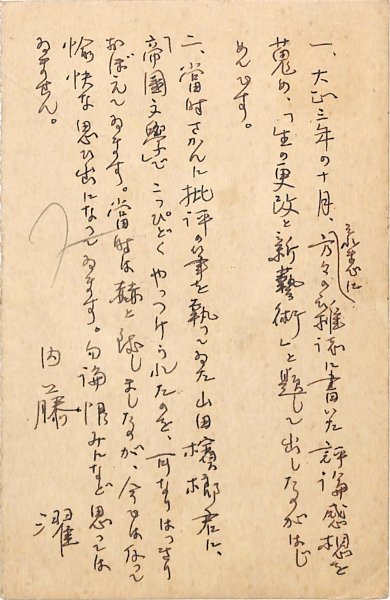 一、大正三年の十月、方々の雑誌に書いた評論感想を
蒐め、「生の更改と新藝術」と題して出したのがはじ
めてです。
二、當時さかんに批評の筆を執つてゐた山田檳榔君に、
「帝國文學」でこつぴどくやつつけられたのを、可なりはつきり
おぼえてゐます。當時は赫と致しましたのが、今では却つて
愉快な思ひ出になつてゐます。勿論恨みんなど思つては
ゐません。
内藤 濯